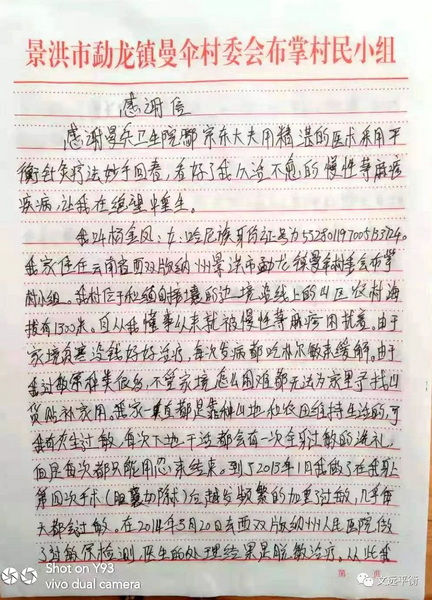 景洪市勐龙镇曼伞村委会布掌村民小组
感谢信
感谢曼兵卫生院鄢京东大夫用精湛的医术采用平
衡针灸疗法妙手回春,看好了我久治不愈的慢性荨麻疹
疾病,让我在绝望中重生。
我叫杨金凤,女,哈尼族身份证号为532801197005133724。
我家住在云南省西双版纳州景洪市勐龙镇曼伞村委会布掌
村小组。我村位于松绵自掉囊的边境沿线上的山区农村海
拔有1300米。自从我懂事以来就被慢性荨麻疹困扰着。由于
家境贫寒没钱好好治疗,每次发病都吃扑尔敏来缓解。由于
我过敏原种类很多,不管家境怎么困难都无法为家里寻找山
货贴补家用。我家一直都是靠种山地和收田维持生活的,可
我有花生过敏,每次下地干活都会有一次全身过敏的洗礼
但是每次都只能用忍来结束。到了2013年1月我做了在我身上
第四次手术(胆囊切除术)后越发频繁的加重了过敏,几乎每
天都会过敏。在2014年5月20日去西双版纳州人民医院做
了过敏原检测 医生的处理结果是脱敏治疗。从此我
第 页
Shot on Y93
vivo dual camera
文远平衡